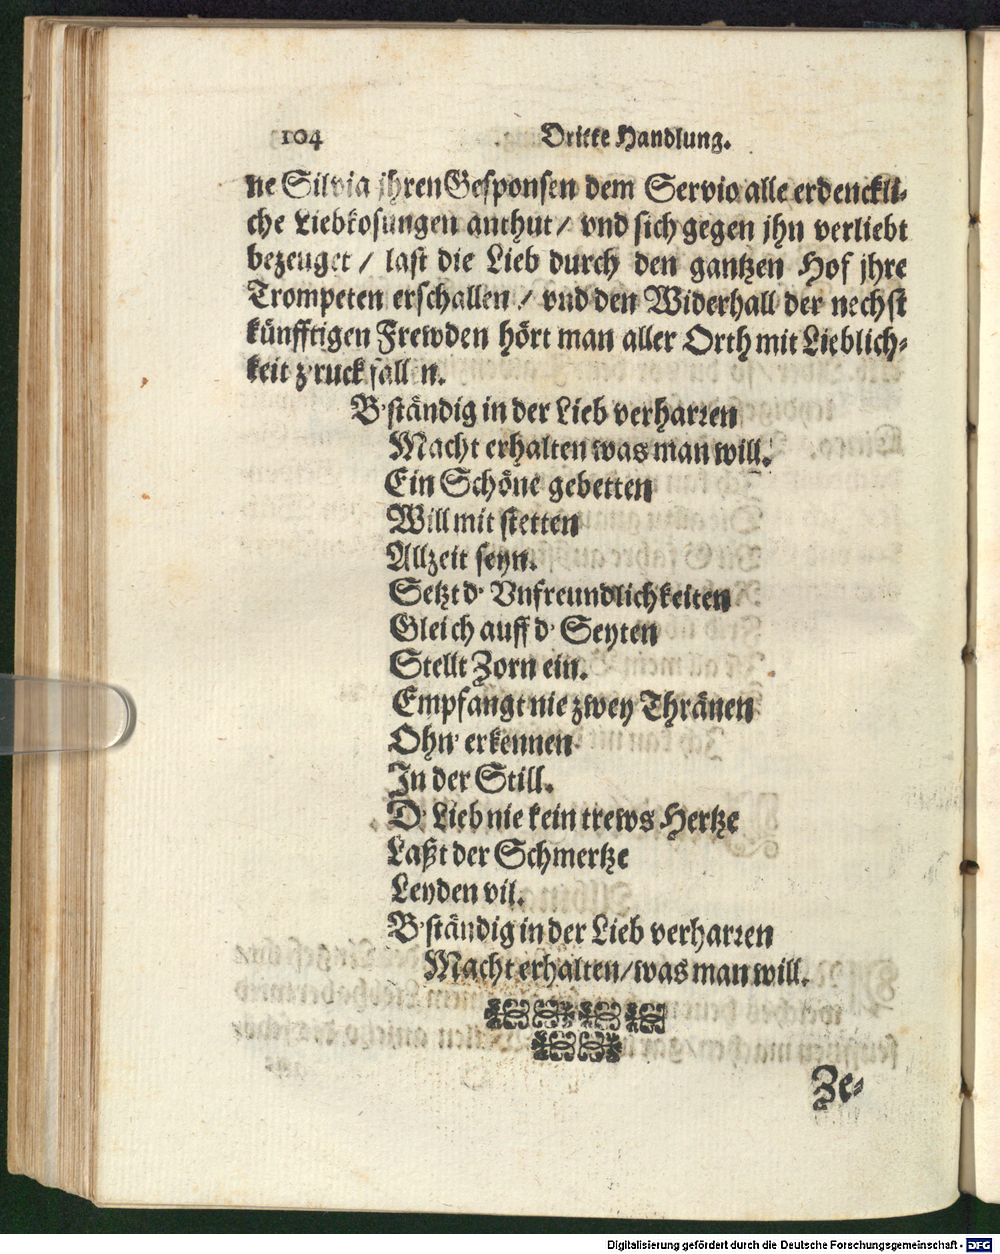 104 Dritte Handlung.
ne Silvia jhren Gesponsen dem Servio alle erdenckli-
che Liebkosungen anthut / vnd sich gegen jhn verliebt
bezeuget / last die Lieb durch den gantzen Hof jhre
Trompeten erschallen / vnd den Widerhall der nechst
künfftigen Frewden hört man aller Orth mit Lieblich-
keit z'ruck fallen.
B'ständig in der Lieb verharren
Macht erhalten was man will.
Ein Schöne gebetten
Will mit stetten
Allzeit seyn.
Setzt d' Vnfreundlichkeiten
Gleich auff d' Seyten
Stellt Zorn ein.
Empfangt nie zwey Thränen
Ohn' erkennen
In der Still.
D' Lieb nie kein trews Hertze
Laßt der Schmertze
Leyden vil.
B'ständig in der Lieb verharren
Macht erhalten / was man will.
Ze-
Digitalisierung gefördert durch die Deutsche Forschungsgemeinschaft - DFG